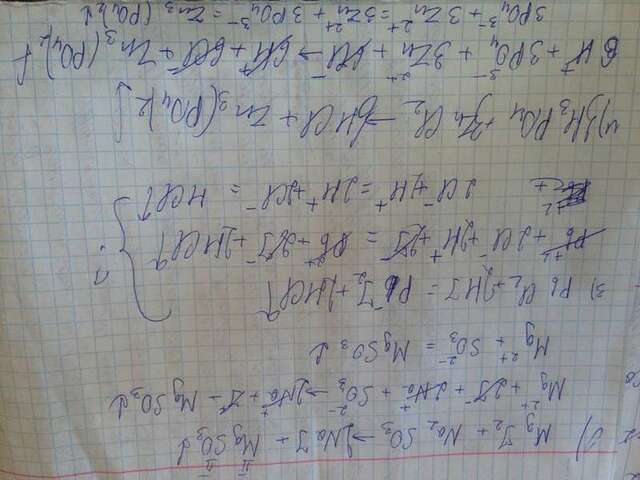 2) MgJ₂ + Na₂SO₃ → 2NaJ + MgSO₃↓
Mg²⁺ + 2J⁻ + 2Na⁺ + SO₃²⁻ → 2Na⁺ + J⁻ + MgSO₃↓
Mg²⁺ + SO₃²⁻ = MgSO₃↓
3) PbCl₂ + 2HJ = PbJ₂ + 2HCl↑
Pb²⁺ + 2Cl⁻ + 2H⁺ + 2J⁻ = Pb²⁺ + 2J⁻ + 2HCl↑
2Cl⁻ + 2H⁺ = 2H⁺ + 2Cl⁻ = HCl↑
?
4) 2H₃PO₄ + 3ZnCl₂ → 6HCl + Zn₃(PO₄)₂↓
6H⁺ + 3PO₄³⁻ + 3Zn²⁺ + 6Cl⁻ → 6H⁺ + 6Cl⁻ + Zn₃(PO₄)₂↓
3PO₄³⁻ + 3Zn²⁺ = Zn₃(PO₄)₂↓